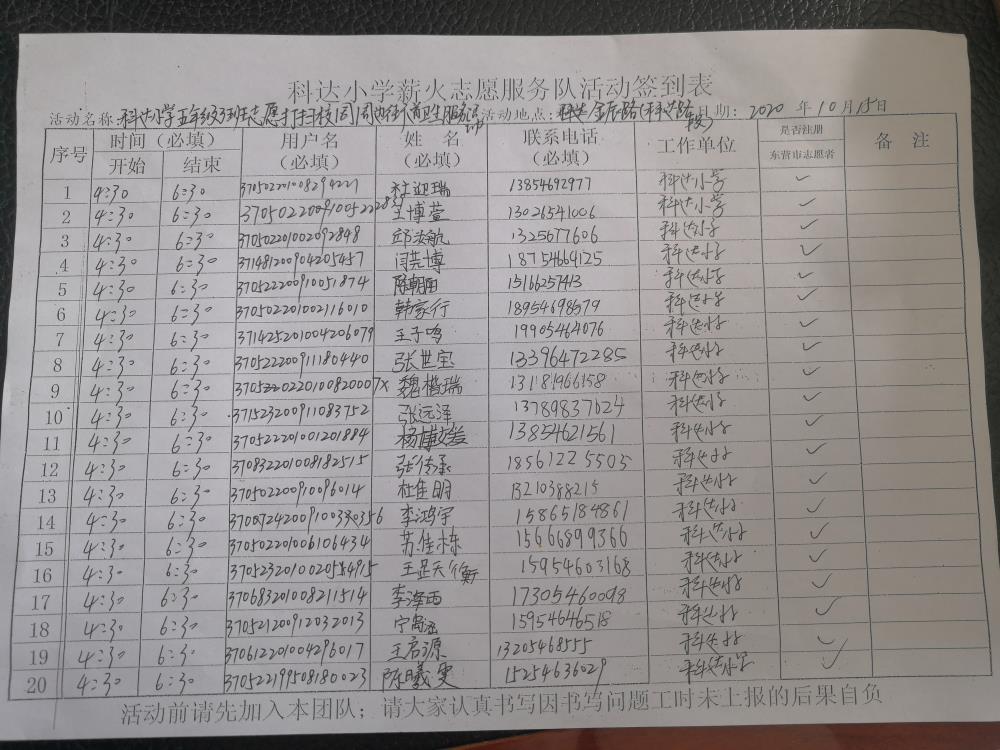 科达小学薪火志愿服务队活动签到表
活动名称：科达小学五年级3班志愿打扫校园周边街道卫生服务活动 活动地点：金辰路(科达路段) 日期：2020 年 10 月 15 日
序号 时间（必填） 开始 结束 用户名（必填） 姓 名（必填） 联系电话（必填） 工作单位 是否注册东营市志愿者 备 注
1 4:30 6:30 370502201008294221 杜迎瑞 13854692977 科达小学 ✓
2 4:30 6:30 王博萱 13026541006 科达小学 ✓
3 4:30 6:30 370502201002092848 邱 航 1325677606 科达小学 ✓
4 4:30 6:30 371481200904205457 闫芫博 18754664125 科达小学 ✓
5 4:30 6:30 370522200910051874 陈朝阳 15166257413 科达小学 ✓
6 4:30 6:30 370502201002116010 韩家行 18954698579 科达小学 ✓
7 4:30 6:30 371425201004206079 王子鸣 19905464076 科达小学 ✓
8 4:30 6:30 370522200911180440 张世宝 13396472285 科达小学 ✓
9 4:30 6:30 魏楷瑞 13181966158 科达小学 ✓
10 4:30 6:30 371523200911083752 张远泽 13789837624 科达小学 ✓
11 4:30 6:30 370522201001201884 杨博 13854621561 科达小学 ✓
12 4:30 6:30 370832201008182515 张传承 18561225505 科达小学 ✓
13 4:30 6:30 370502200910096014 杜佳明 13210388215 科达小学 ✓
14 4:30 6:30 李鸿宇 15865184861 科达小学 ✓
15 4:30 6:30 370502201006106434 苏佳栋 15666899366 科达小学 ✓
16 4:30 6:30 王显天衡 15954603168 科达小学 ✓
17 4:30 6:30 370683201008211514 李泽西 17305460098 科达小学 ✓
18 4:30 6:30 370521200912032013 宁 15954646518 科达小学 ✓
19 4:30 6:30 370612201004296017 王启源 13205468555 科达小学 ✓
20 4:30 6:30 370522199508180023 陈曦雯 15254636029 科达小学 ✓
活动前请先加入本团队；请大家认真书写因书写问题工时未上报的后果自负